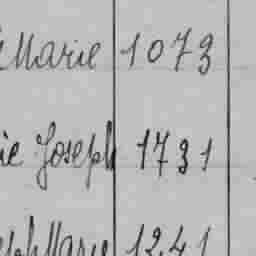 Marie 1073
ie Joseph 1731
eph Marie 1241